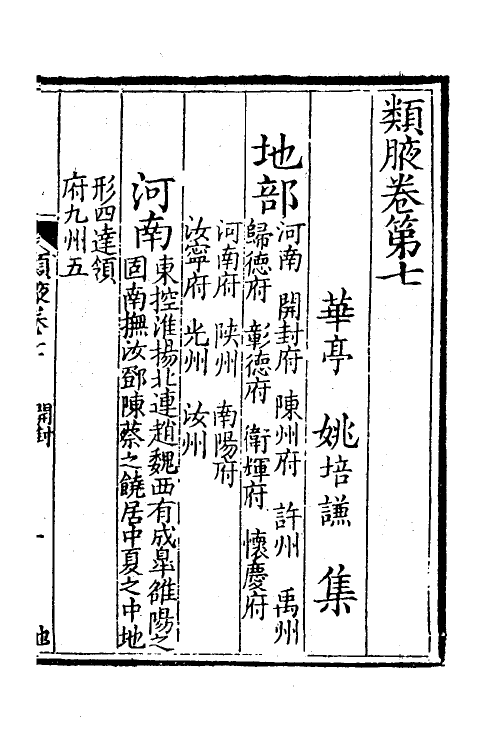 類腋卷第七
華亭 姚培謙 集
地部
河南 開封府 陳州府 許州 禹州
歸德府 彰德府 衛輝府 懷慶府
河南府 陜州 南陽府
汝寧府 光州 汝州
河南
東控淮揚北連趙魏西有成臯雒陽之
固南撫汝鄧陳蔡之饒居中夏之中地
形四達領
府九州五
類腋卷七 開封 一 地